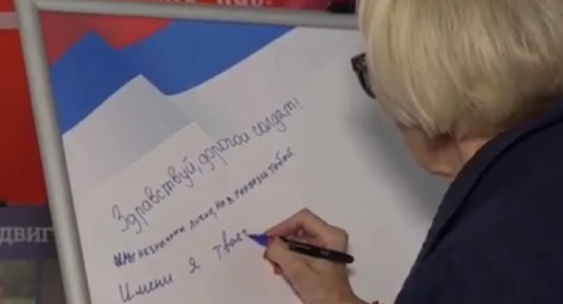 Здравствуй, дорогой солдат!
Мы незнакомы лично, но я горжусь тобой
Имени я твоег
ДВИГ